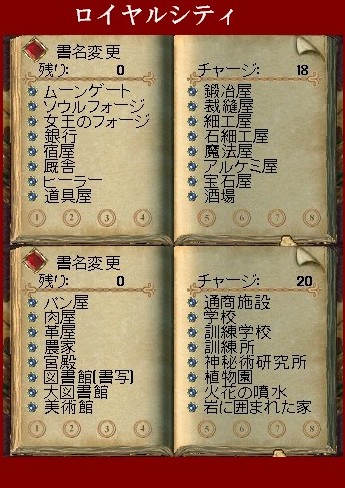 ロイヤルシティ
書名変更
残り: 0
ムーンゲート
ソウルフォージ
女王のフォージ
銀行
宿屋
厩舎
ヒーラー
道具屋
1 2 3 4
チャージ: 18
鍛冶屋
裁縫屋
細工屋
石細工屋
魔法屋
アルケミ屋
宝石屋
酒場
5 6 7 8
書名変更
残り: 0
パン屋
肉屋
革屋
農家
宮殿
図書館(書写)
大図書館
美術館
1 2 3 4
チャージ: 20
通商施設
学校
訓練学校
訓練所
神秘術研究所
植物園
火花の噴水
岩に囲まれた家
5 6 7 8